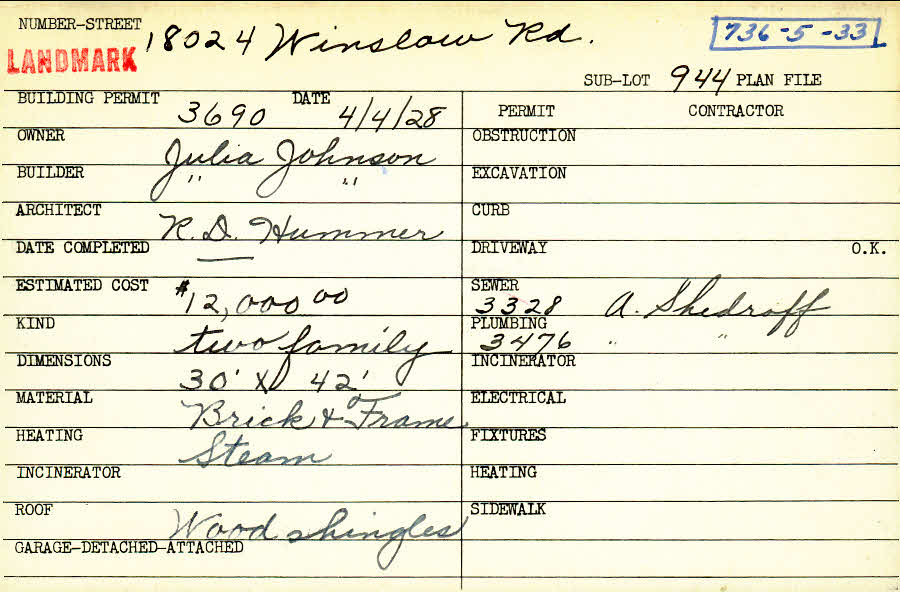 NUMBER-STREET 18024 Winslow Rd. 736-5-33
LANDMARK
SUB-LOT 944 PLAN FILE
BUILDING PERMIT 3690 DATE 4/4/28 PERMIT CONTRACTOR
OWNER Julia Johnson OBSTRUCTION
BUILDER " " EXCAVATION
ARCHITECT R.D. Hummer CURB
DATE COMPLETED — DRIVEWAY O.K.
ESTIMATED COST $12,000 00 SEWER 3328 A. Shedroff
KIND two family PLUMBING 3476 " "
DIMENSIONS 30' X 42' INCINERATOR
MATERIAL Brick & Frame ELECTRICAL
HEATING Steam FIXTURES
INCINERATOR HEATING
ROOF Wood shingles SIDEWALK
GARAGE-DETACHED-ATTACHED